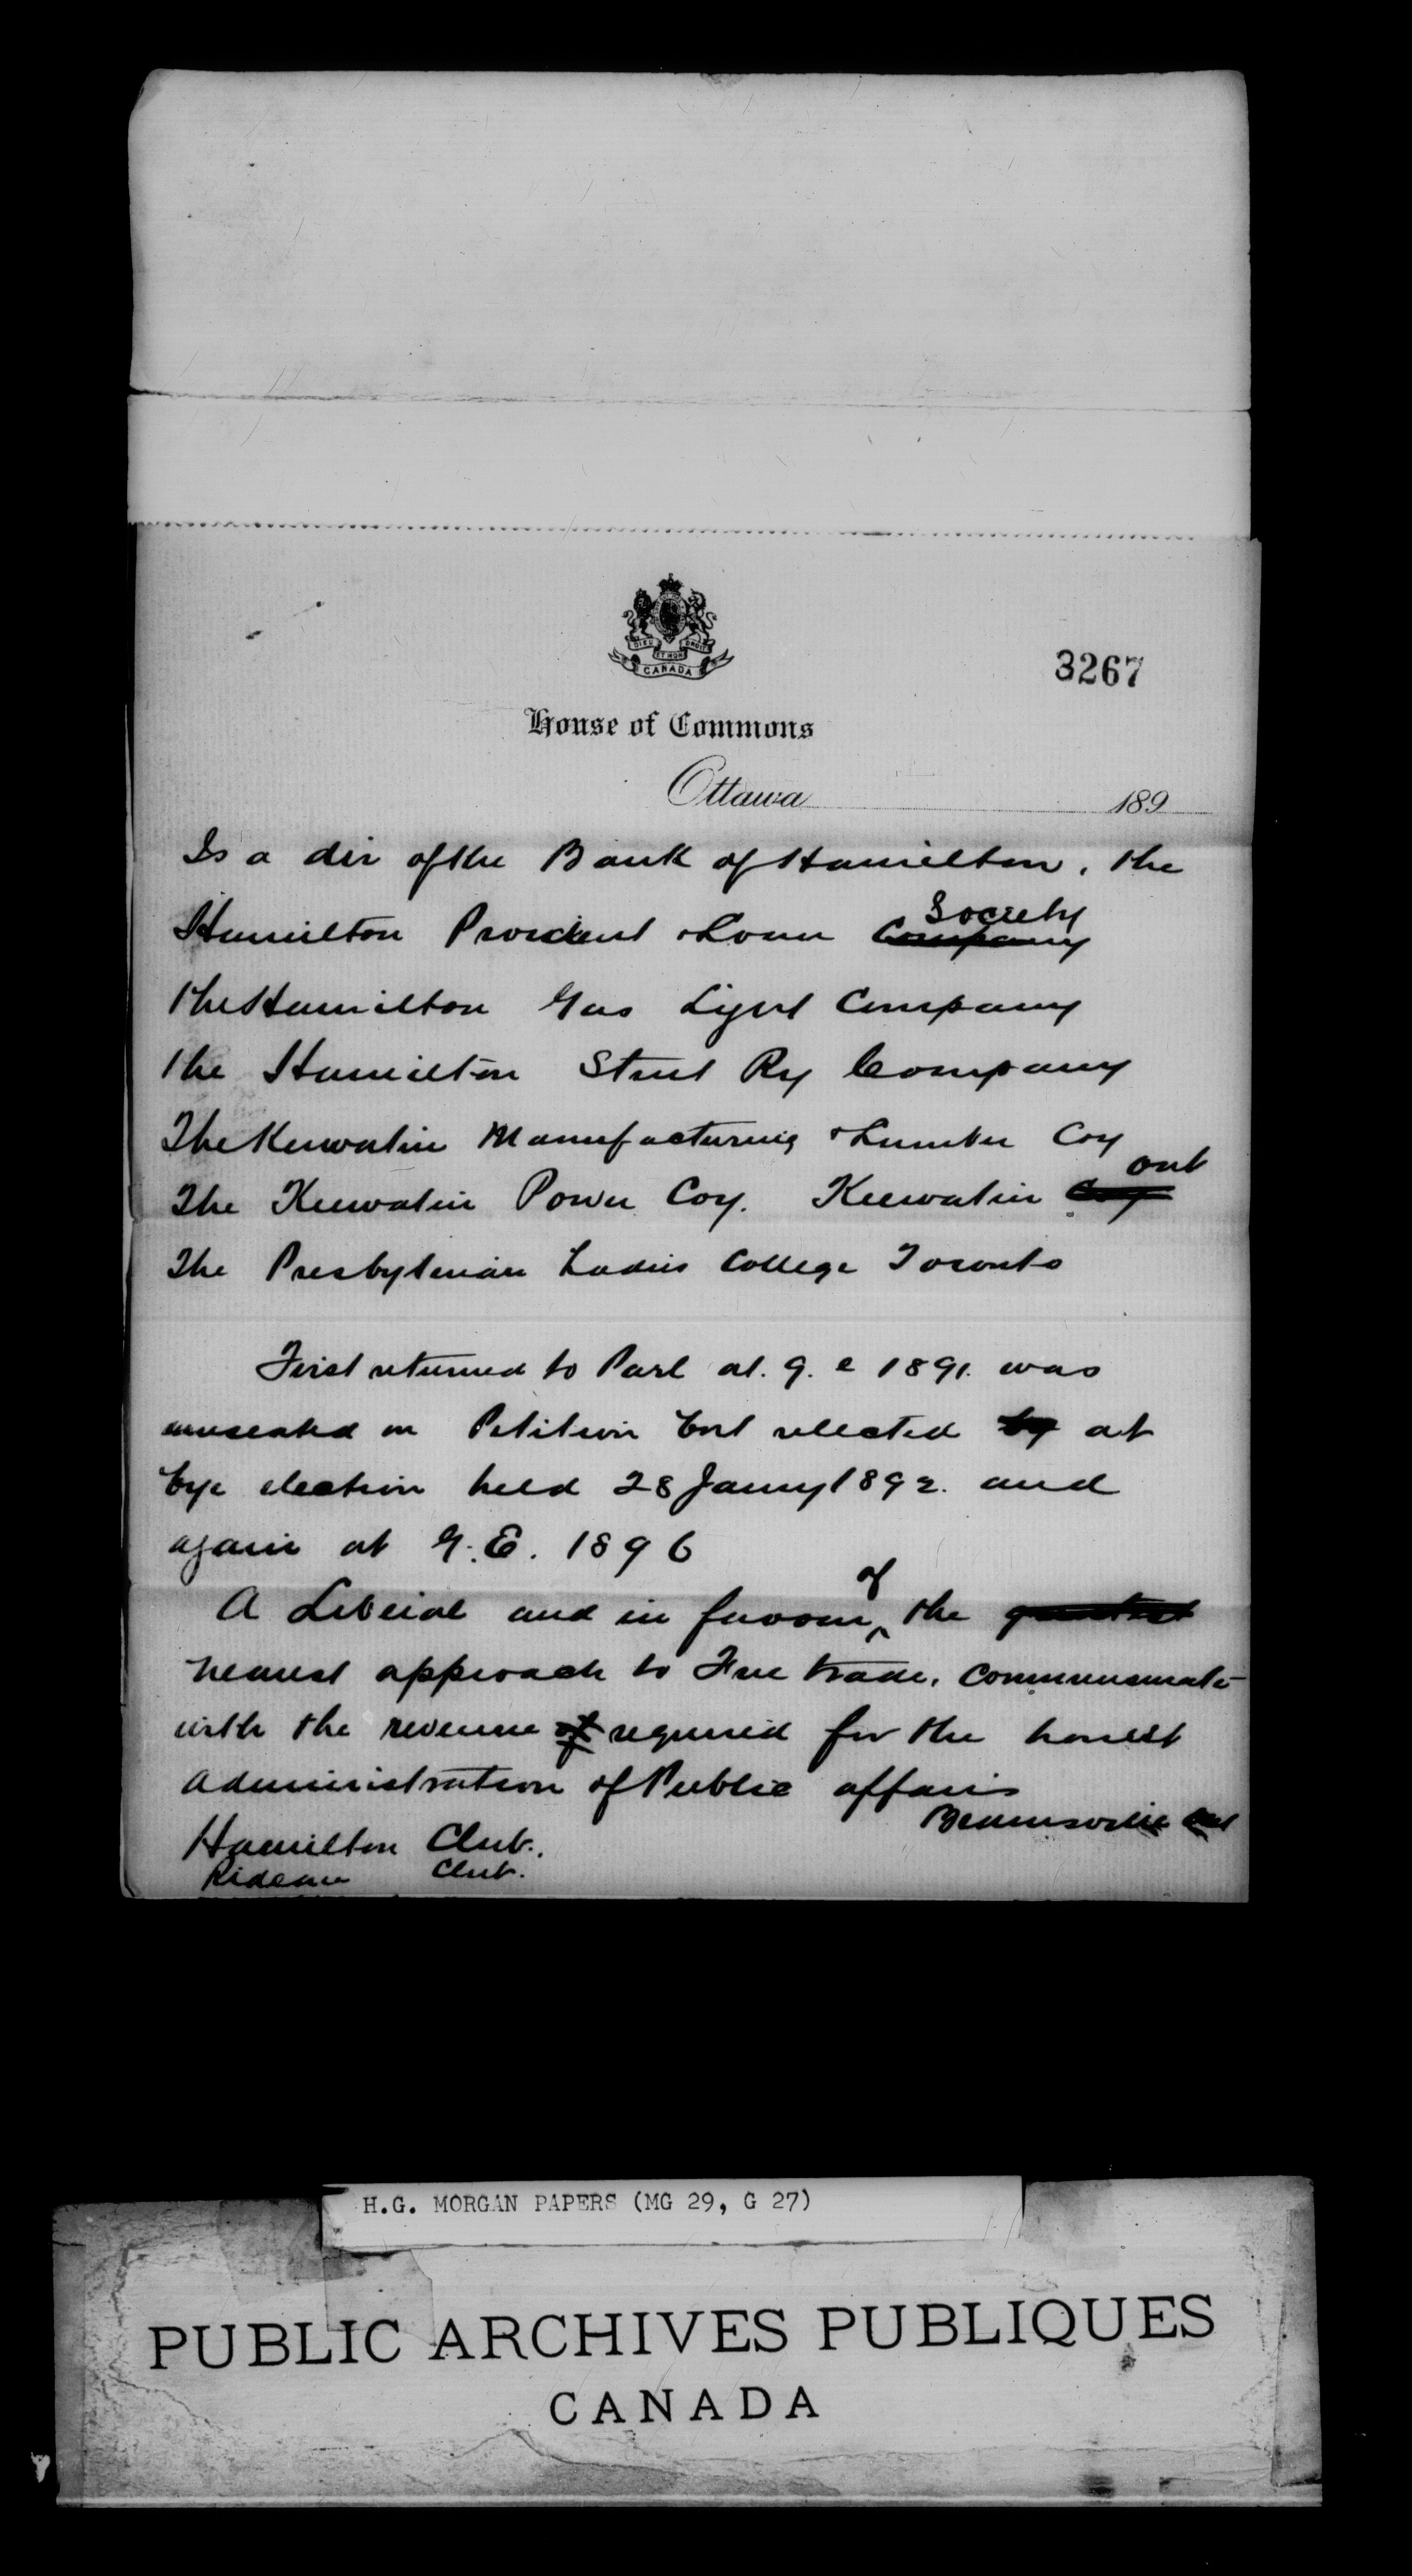 DIEU ET MON DROIT
CANADA
3267
House of Commons
Ottawa 189
Is a dir of the Bank of Hamilton, the
Hamilton Provident & Loan Company Society
The Hamilton Gas Light Company
The Hamilton Street Ry Company
The Keewatin Manufacturing & Lumber Coy
The Keewatin Power Coy. Keewatin Coy Ont
The Presbyterian Ladies College Toronto
First returned to Parl at. g. e 1891. was
unseated on Petition but relected by at
bye election held 28 Janny 1892. and
again at G.E. 1896
A Liberal and in favour of the greatest
nearest approach to Free trade, commensurate
with the revenue of required for the honest
administration of Public affairs
Beamsville Ont
Hamilton Club.
Rideau Club.
H.G. MORGAN PAPERS (MG 29, G 27)
PUBLIC ARCHIVES PUBLIQUES
CANADA